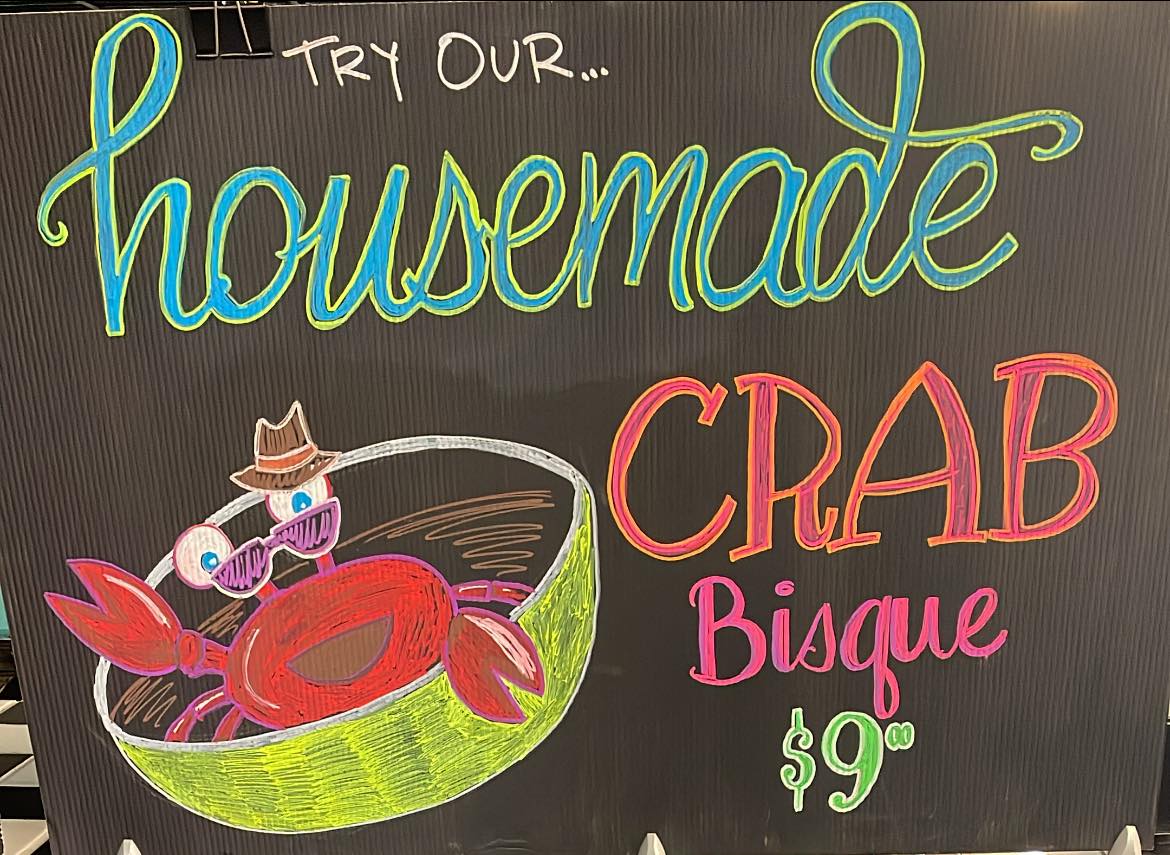 TRY OUR...
housemade
CRAB
Bisque
$9.00